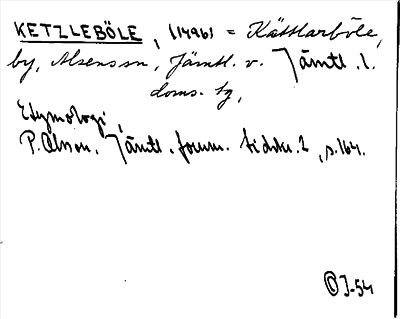 KETZLEBÖLE, (1496) = Kättlarböle,
by, Alsens sn, Jämtl. v. Jämtl. l.
doms. tg,
Etymologi,
P. Olsson, Jämtl. fornm. tidskr. 2, s. 164.
OJ-54